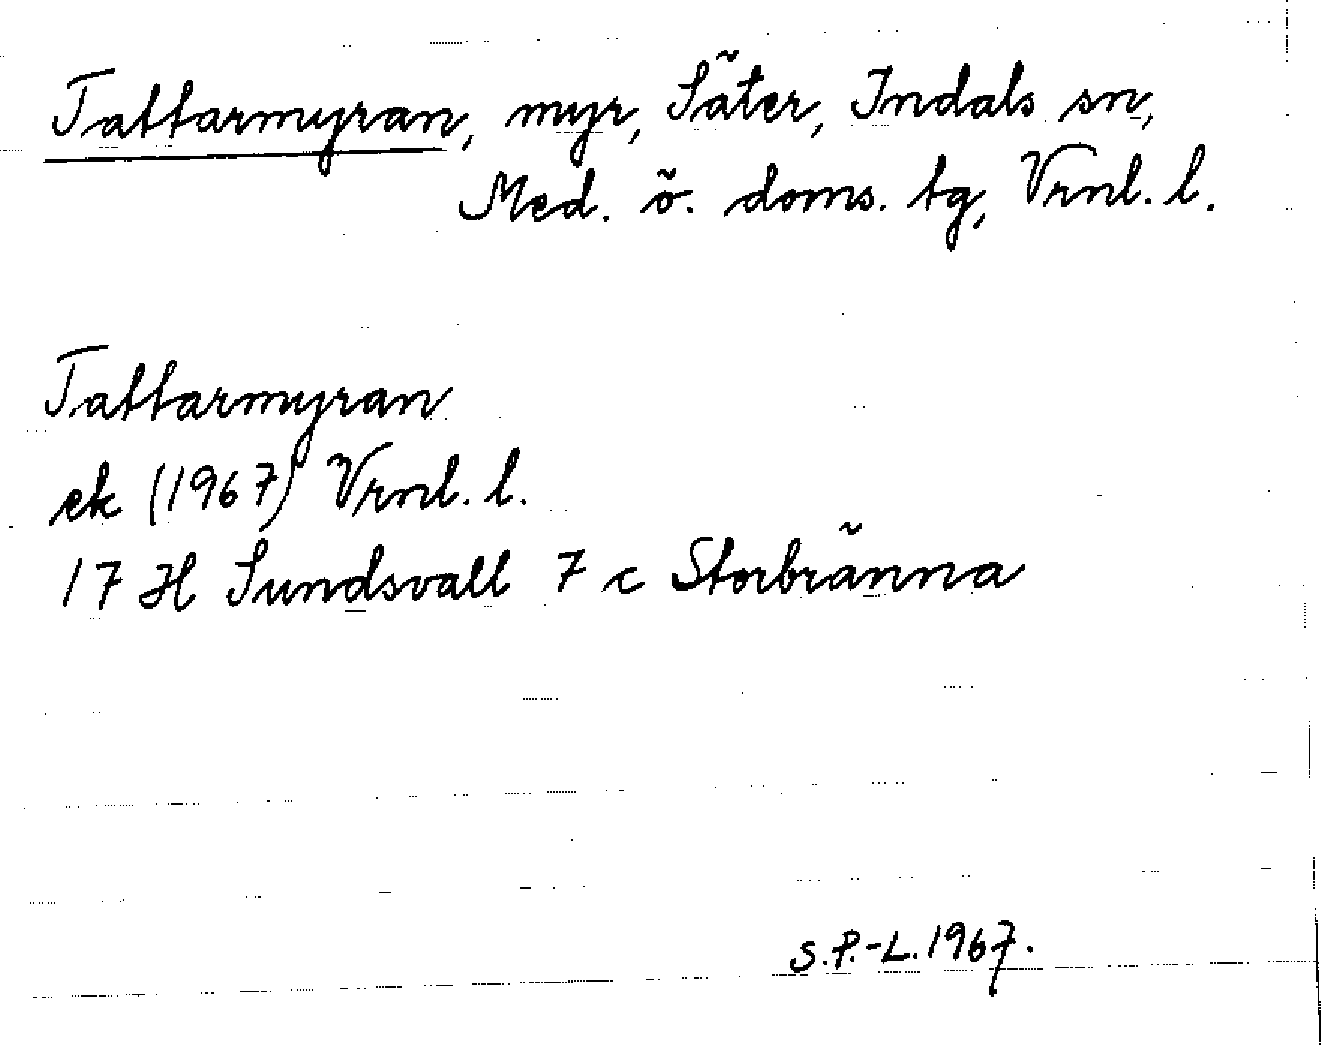 Tattarmyran, myr, Säter, Indals sn,
Med. ö. doms. tg, Vrnl. l.
Tattarmyran
ek (1967) Vrnl. l.
17 H Sundsvall 7 c Storbränna
S.P.-L. 1967.